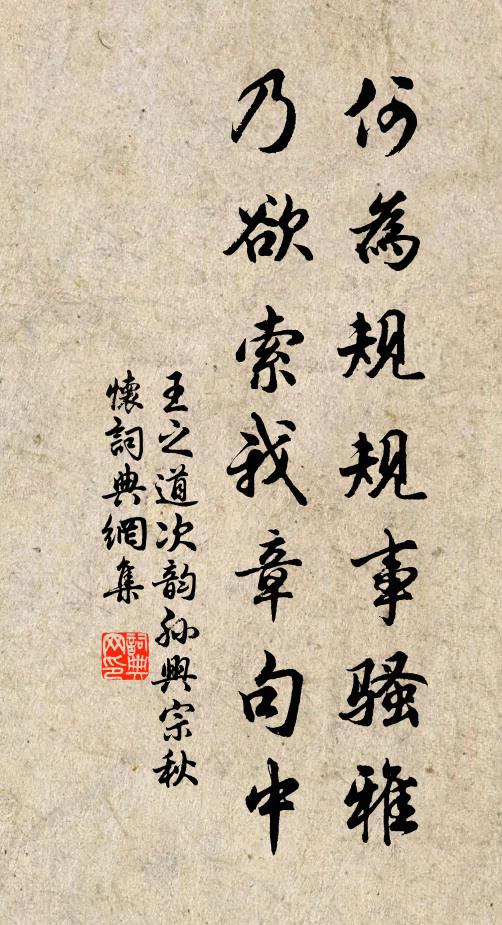 何為規規事騷雅
乃欲索我章句中
王之道次韵孙興宗秋
懷詞典網集
詞典
网印